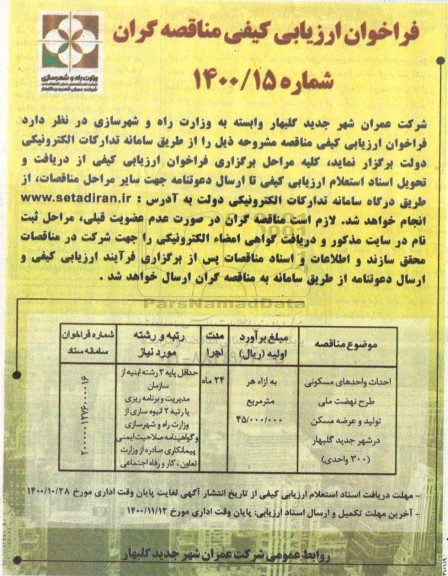 فراخوان ارزیابی کیفی مناقصه گران
شماره ۱۴۰۰/۱۵
وزارت راه و شهرسازی
شرکت عمران شهر جدید گلبهار وابسته به وزارت راه و شهرسازی در نظر دارد
فراخوان ارزیابی کیفی مناقصه مشروحه ذیل را از طریق سامانه تدارکات الکترونیکی
دولت برگزار نماید، کلیه مراحل برگزاری فراخوان ارزیابی کیفی از دریافت و
تحویل اسناد استعلام ارزیابی کیفی تا ارسال دعوتنامه جهت سایر مراحل مناقصات، از
طریق درگاه سامانه تدارکات الکترونیکی دولت به آدرس : www.setadiran.ir
انجام خواهد شد. لازم است مناقصه گران در صورت عدم عضویت قبلی، مراحل ثبت
نام در سایت مذکور و دریافت گواهی امضاء الکترونیکی را جهت شرکت در مناقصات
محقق سازند و اطلاعات و اسناد مناقصات پس از برگزاری فرآیند ارزیابی کیفی و
ارسال دعوتنامه از طریق سامانه به مناقصه گران ارسال خواهد شد .
ParsNamadData
موضوع مناقصه
مبلغ برآورد
اولیه (ریال)
مدت
اجرا
رتبه و رشته
مورد نیاز
شماره فراخوان
سامانه ستاد
احداث واحدهای مسکونی
طرح نهضت ملی
تولید و عرضه مسکن
در شهر جدید گلبهار
(۳۰۰ واحدی)
به ازاء هر
مترمربع
۴۵/۰۰۰/۰۰۰
۲۴ ماه
حداقل پایه ۳ رشته ابنیه از
سازمان
مدیریت و برنامه ریزی
یا رتبه ۲ انبوه سازی از
وزارت راه و شهرسازی
و گواهینامه صلاحیت ایمنی
پیمانکاری صادره از وزارت
تعاون ، کار و رفاه اجتماعی
– مهلت دریافت اسناد استعلام ارزیابی کیفی از تاریخ انتشار آگهی لغایت پایان وقت اداری مورخ ۱۴۰۰/۱۰/۲۸
– آخرین مهلت تکمیل و ارسال اسناد ارزیابی: پایان وقت اداری مورخ ۱۴۰۰/۱۱/۱۲
روابط عمومی شرکت عمران شهر جدید گلبهار